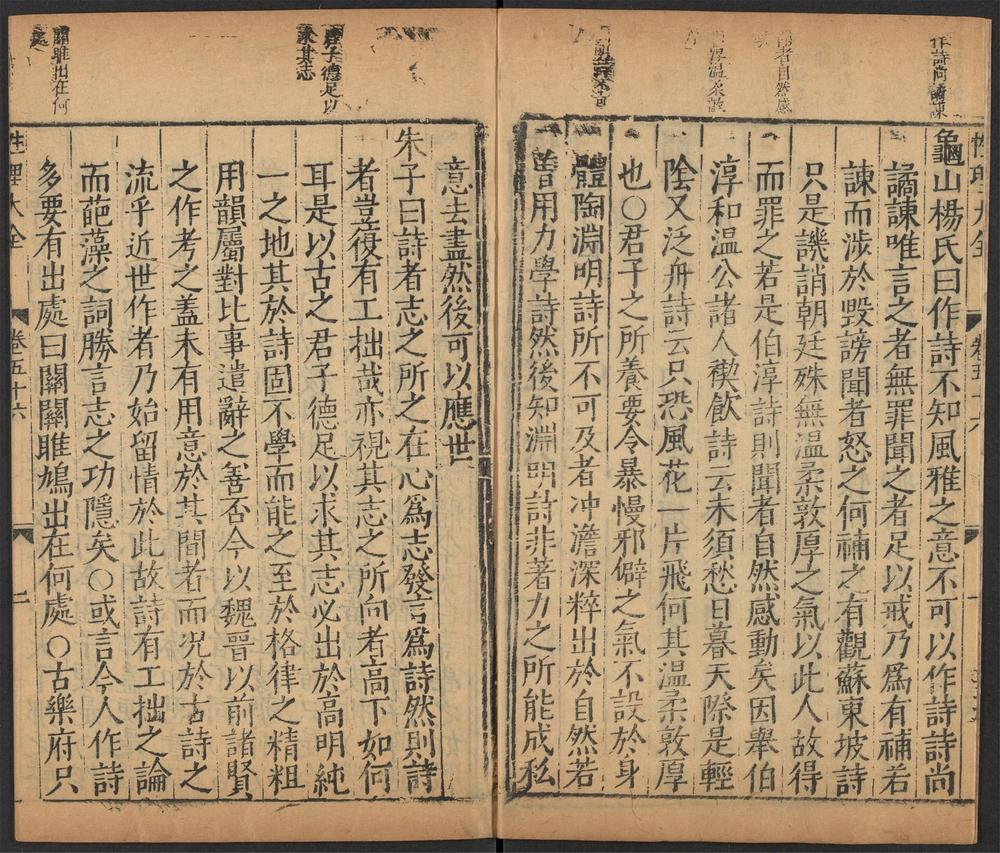 作詩尚譎諫
聞者自然感
淳溫柔敦
君子德足以
求其志
關雎出在何
處
龜山楊氏曰作詩不知風雅之意不可以作詩詩尚
譎諫唯言之者無罪聞之者足以戒乃爲有補若
諫而涉於毀謗聞者怒之何補之有觀蘇東坡詩
只是譏誚朝廷殊無溫柔敦厚之氣以此人故得
而罪之若是伯淳詩則聞者自然感動矣因舉伯
淳和溫公諸人禊飲詩云未須愁日暮天際是輕
陰又泛舟詩云只恐風花一片飛何其溫柔敦厚
也○君子之所養要令暴慢邪僻之氣不設於身
體陶淵明詩所不可及者冲澹深粹出於自然若
曽用力學詩然後知淵明詩非著力之所能成私
意去盡然後可以應世
朱子曰詩者志之所之在心爲志發言爲詩然則詩
者豈復有工拙哉亦視其志之所向者高下如何
耳是以古之君子德足以求其志必出於高明純
一之地其於詩固不學而能之至於格律之精粗
用韻屬對比事遣辭之善否今以魏晉以前諸賢
之作考之蓋未有用意於其閒者而況於古詩之
流乎近世作者乃始留情於此故詩有工拙之論
而葩藻之詞勝言志之功隱矣○或言今人作詩
多要有出處曰關關雎鳩出在何處○古樂府只
性理大全 卷五十六 二